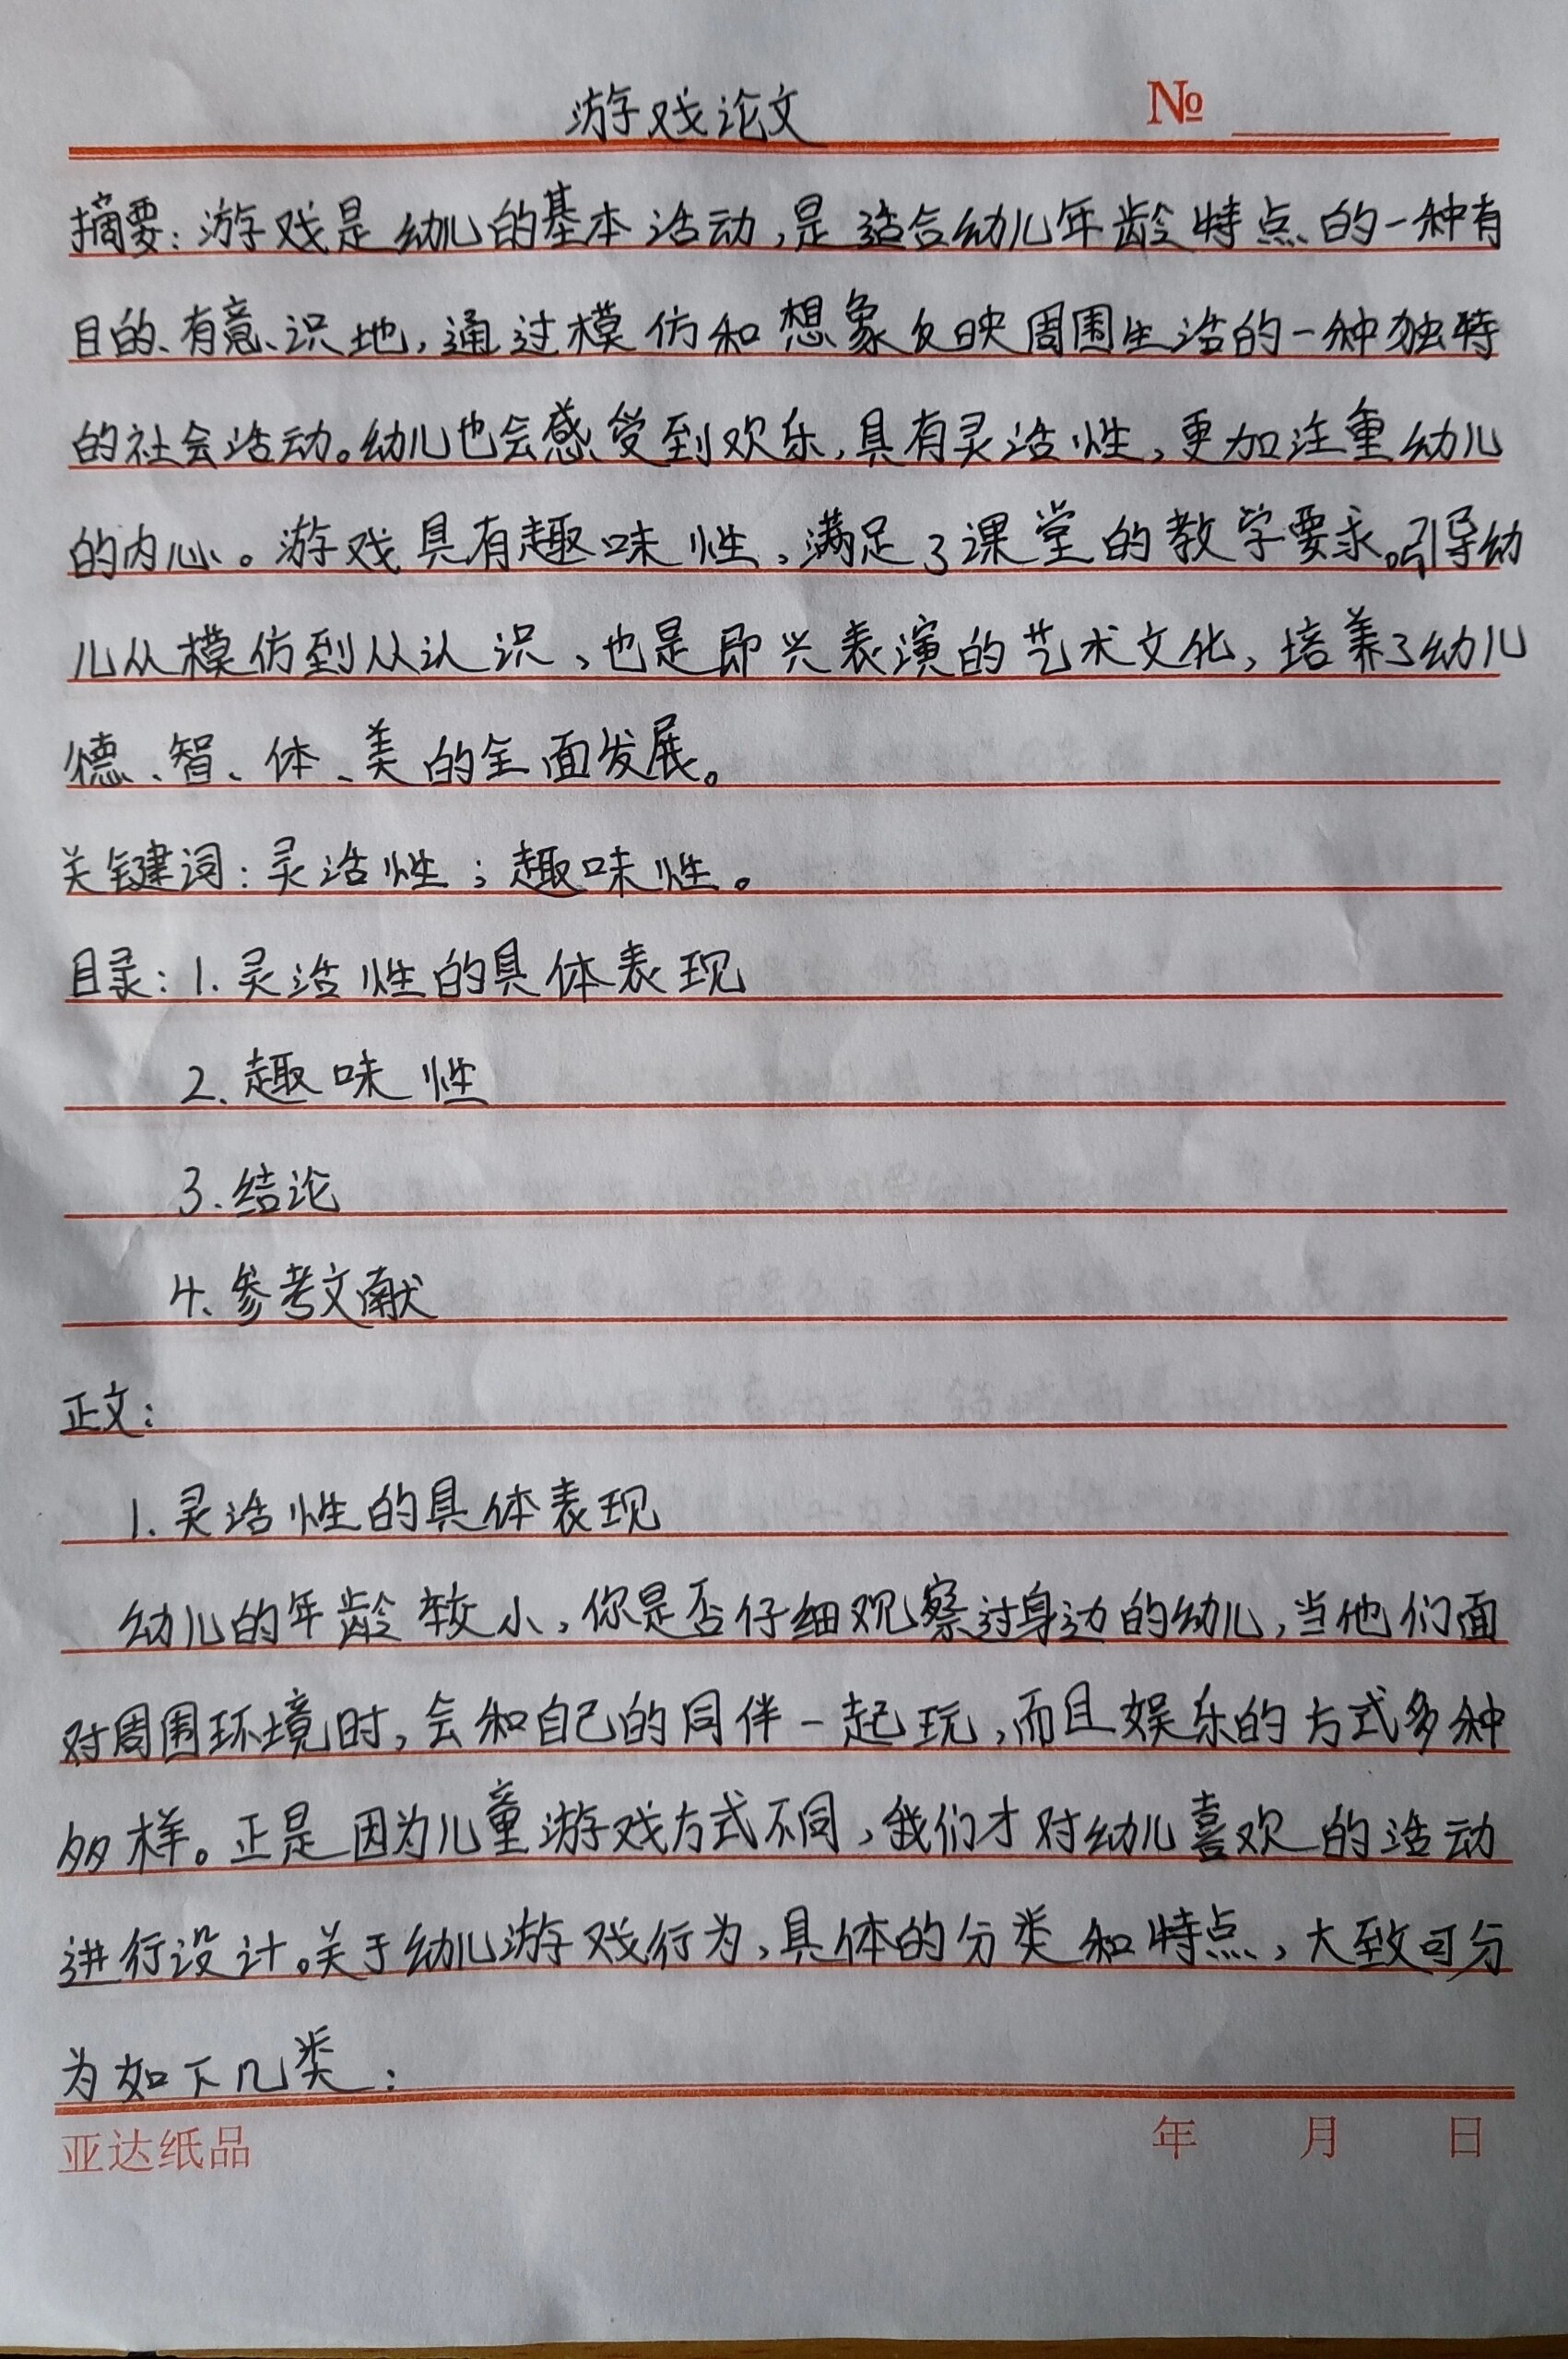 游戏论文 №
摘要：游戏是幼儿的基本活动，是适合幼儿年龄特点的一种有
目的、有意识地，通过模仿和想象反映周围生活的一种独特
的社会活动。幼儿也会感受到欢乐，具有灵活性，更加注重幼儿
的内心。游戏具有趣味性，满足了课堂的教学要求。引导幼
儿从模仿到从认识，也是即兴表演的艺术文化，培养了幼儿
德、智、体、美的全面发展。
关键词：灵活性；趣味性。
目录：1.灵活性的具体表现
2.趣味性
3.结论
4.参考文献
正文：
1.灵活性的具体表现
幼儿的年龄较小，你是否仔细观察过身边的幼儿，当他们面
对周围环境时，会和自己的同伴一起玩，而且娱乐的方式多种
多样。正是因为儿童游戏方式不同，我们才对幼儿喜欢的活动
进行设计。关于幼儿游戏行为，具体的分类和特点，大致可分
为如下几类：
亚达纸品 年 月 日